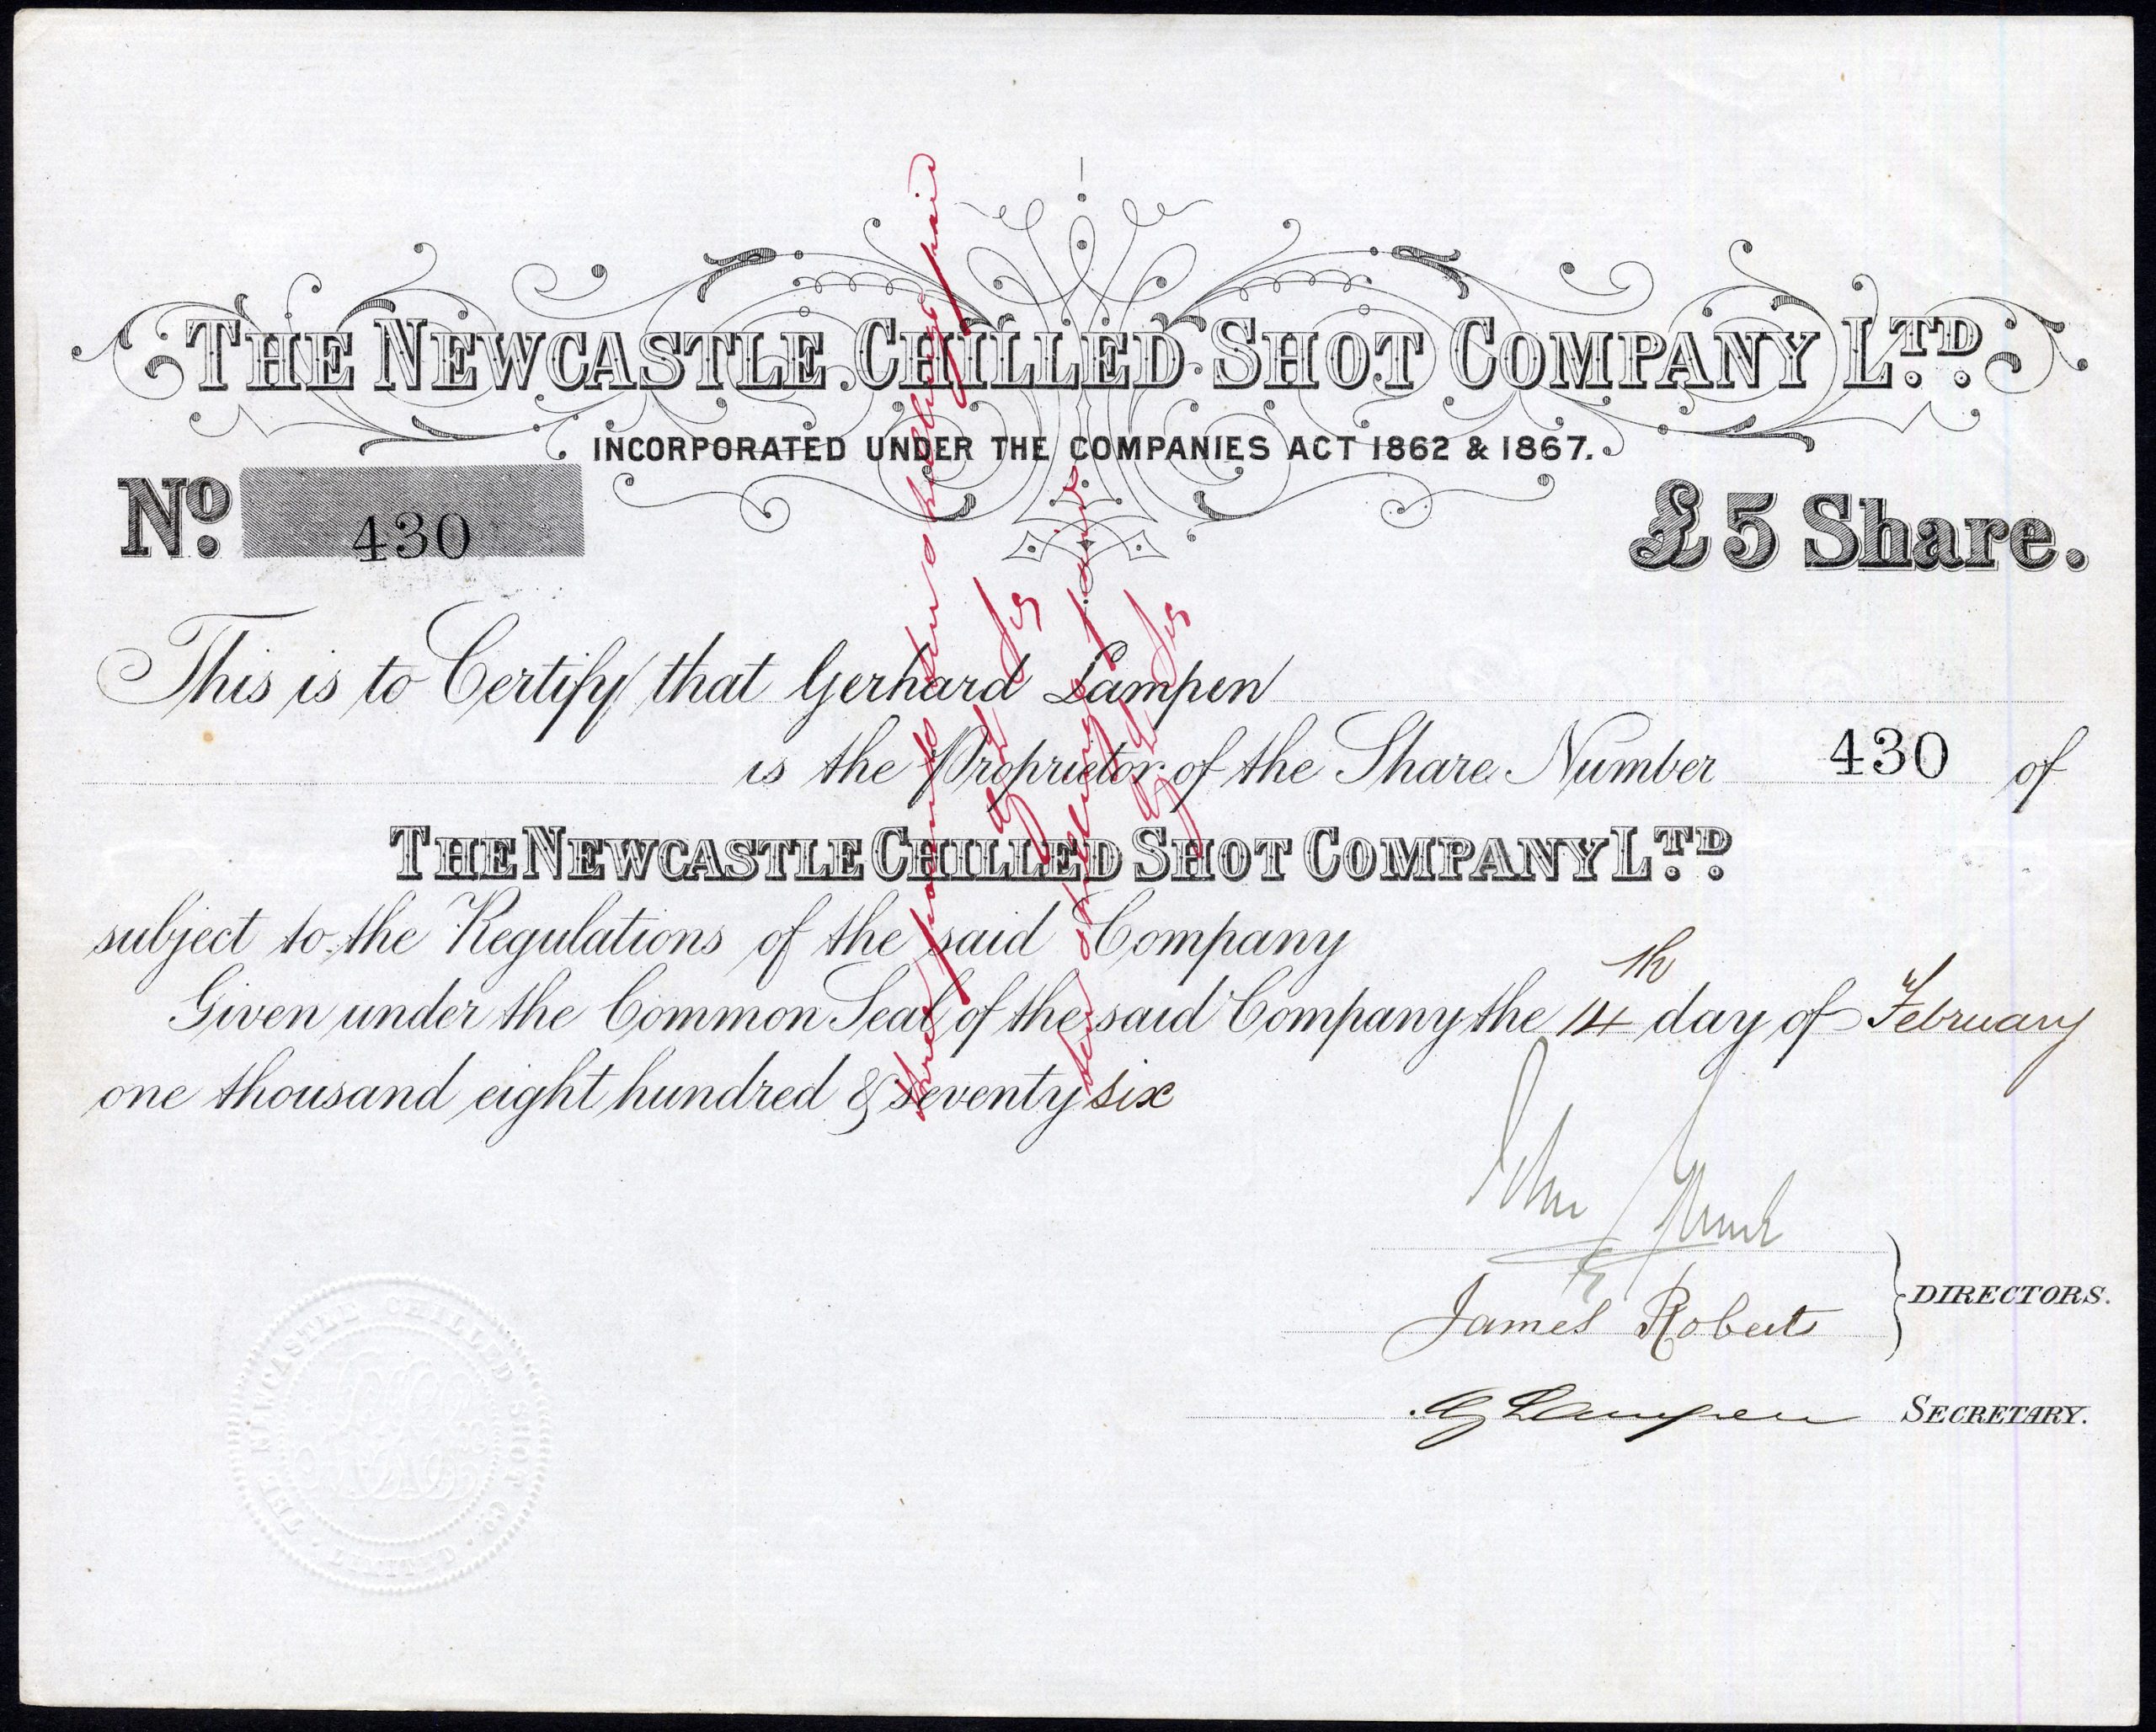 THE NEWCASTLE CHILLED SHOT COMPANY LTD.
INCORPORATED UNDER THE COMPANIES ACT 1862 & 1867.
No. 430
£5 Share.
This is to Certify that Gerhard Lampen
is the Proprietor of the Share Number 430 of
THE NEWCASTLE CHILLED SHOT COMPANY LTD.
subject to the Regulations of the said Company
Given under the Common Seal of the said Company the 14th day of February
one thousand eight hundred & seventy six
three pounds two shillings paid
ten shillings paid
DIRECTORS.
James Roberts
G Lampen SECRETARY.
THE NEWCASTLE CHILLED SHOT CO. LIMITED